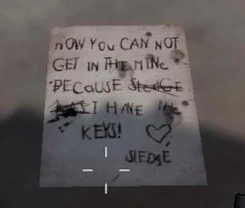 nOW YOU CAN NOT
GET IN THE MINE
BECAUSE SLEDGE
I HAVE THE
KEYS!
SLEDGE